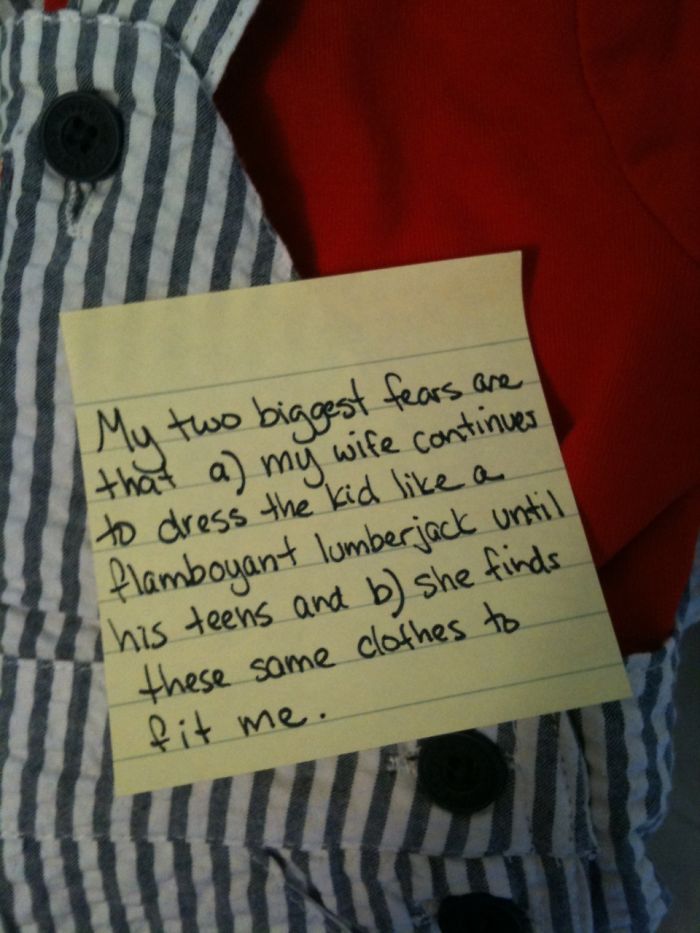 My two biggest fears are
that a) my wife continues
to dress the kid like a
flamboyant lumberjack until
his teens and b) she finds
these same clothes to
fit me.